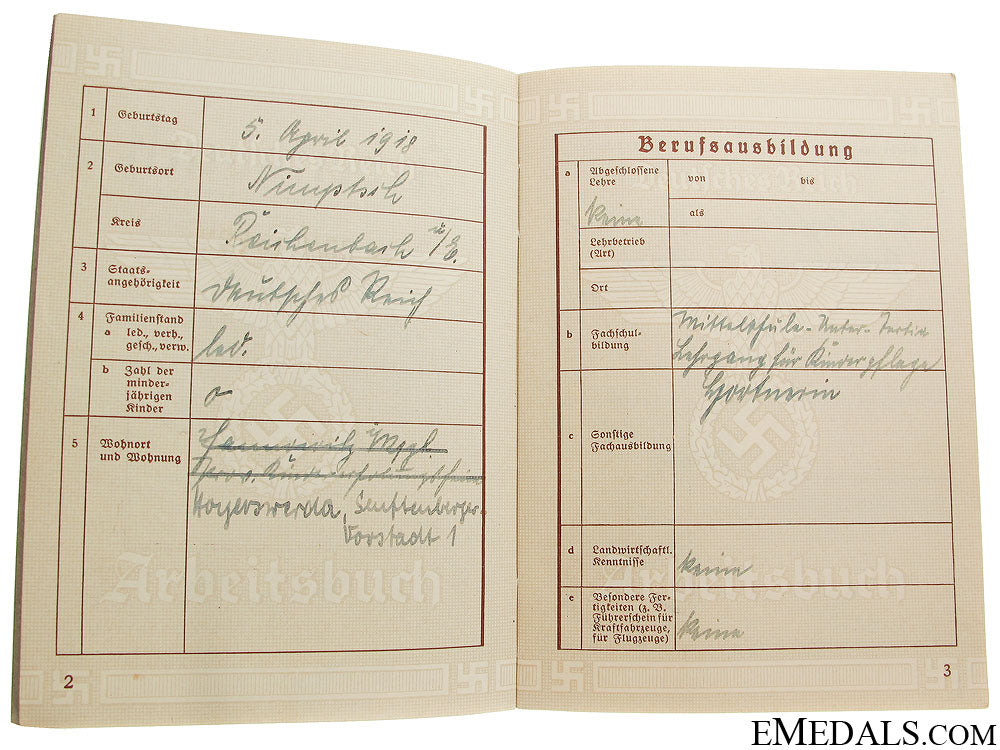 1 Geburtstag 5. April 1918
2 Geburtsort Nimptsch
Kreis Reichenbach u/E.
3 Staats-
angehörigkeit Deutsches Reich
4 Familienstand
a led., verh.,
gesch., verw. led.
b Zahl der
minder-
jährigen
Kinder 0
5 Wohnort
und Wohnung
Hoyerswerda, Senftenberger-
Vorstadt 1
Arbeitsbuch
2
Berufsausbildung
a Abgeschlossene
Lehre von bis
keine als
Lehrbetrieb
(Art)
Ort
b Fachschul-
bildung Mittelschule - Unter-Tertia
Lehrgang für Kinderpflege
Gärtnerin
c Sonstige
Fachausbildung
d Landwirtschaftl.
Kenntnisse keine
e Besondere Fer-
tigkeiten (z. B.
Führerschein für
Kraftfahrzeuge,
für Flugzeuge) keine
Arbeitsbuch
3
EMEDALS.COM